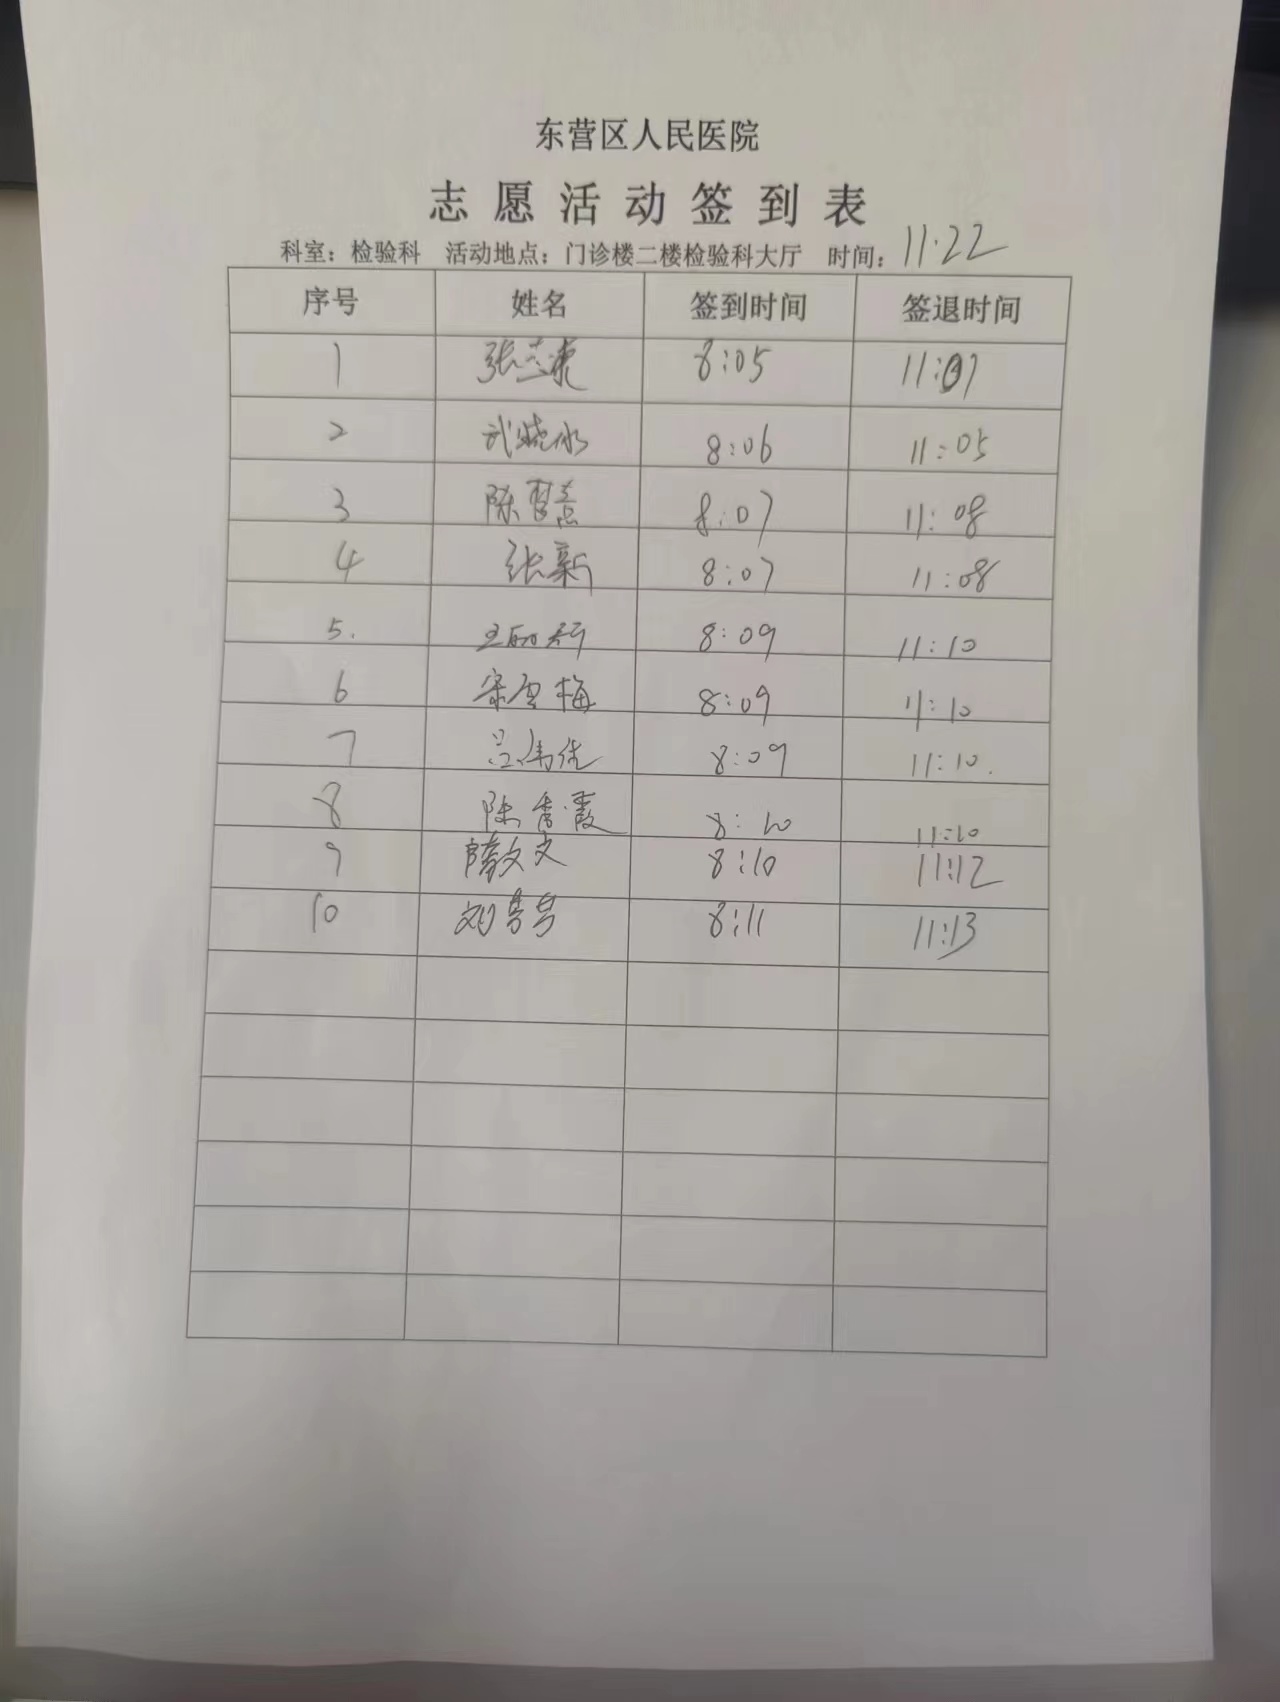 东营区人民医院
志愿活动签到表
科室：检验科 活动地点：门诊楼二楼检验科大厅 时间：11.22
序号 姓名 签到时间 签退时间
1 张 8:05 11:07
2 武晓冰 8:06 11:05
3 陈 8:07 11:08
4 张新 8:07 11:08
5. 王丽 8:09 11:10
6 宋雪梅 8:09 11:10
7 吕伟 8:09 11:10.
8 陈香霞 8:10 11:10
9 隋文文 8:10 11:12
10 刘 8:11 11:13